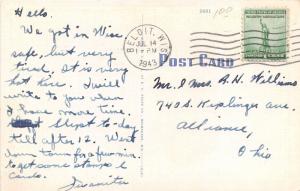 Hello.
We got in Wisc
safe, but very
tired. It is very
hot here. I will
write to you when
I have more time.
slept to-day
till after 12. Went
down town for a few min.
to get some stamps &
cards.
Juanita
BELOIT, WIS.
JUL 14
1 PM
1943
POST CARD
Mr. & Mrs. A. H. Williams
740 S. Keplinger Ave.
Alliance,
Ohio